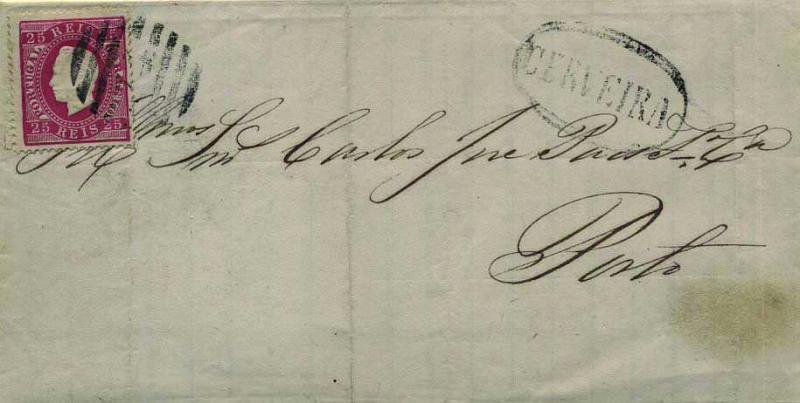 25 REIS 25
PORTUGAL
25 REIS 25
CERVEIRA
Illmos Snr Carlos José
Porto